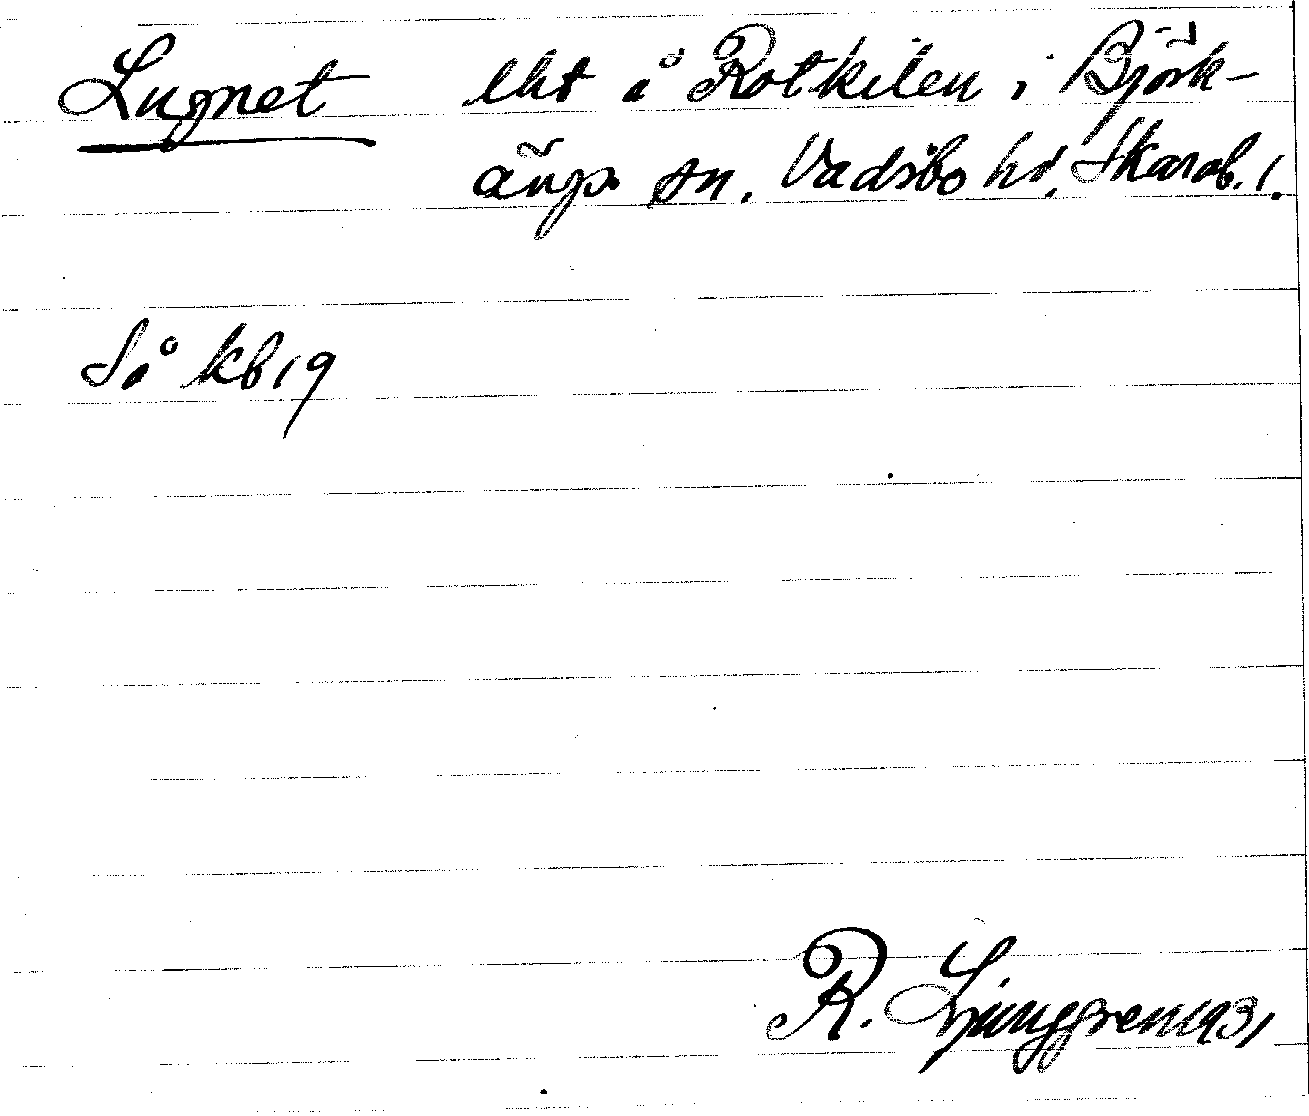 Lugnet lht å Rotkilen i Björk-
ängs sn. Vadsbo hd, Skarab. l.
Så kb 19
R. Ljunggren 1931